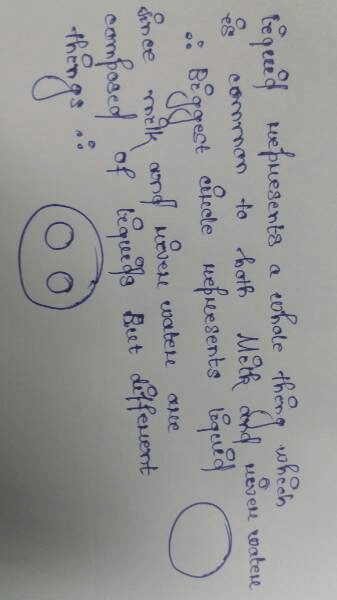 liquid represents a whole thing which
is common to both Milk and river water
∴ Biggest circle represents liquid
since milk and river water are
composed of liquids But different
things ∴